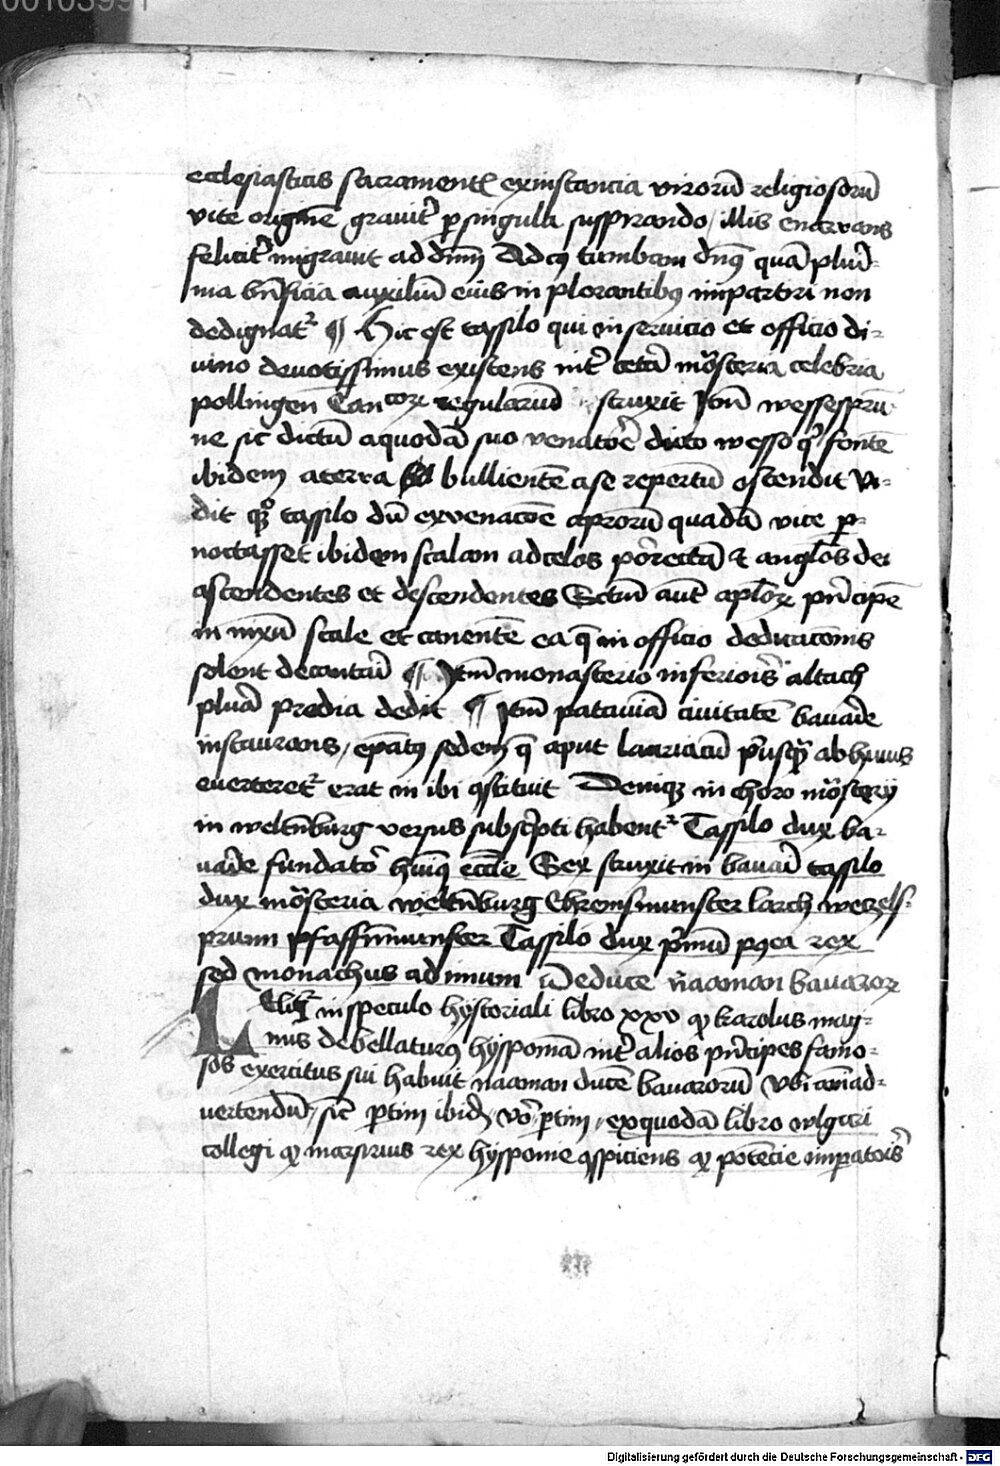 00103991
ecclesiasticis sacramentꝭ exinstancia virorū religiosorū
vite originē grauit᷑ ꝑ singula suspirando / illis enarrans
felicit᷑ migrauit ad dn̄m Ad cuꝰ tumbam dn̄s quā plur̄-
ma bn̄ficia auxiliū eius in plorantibꝰ impartiri non
dedignat᷑ ¶ Hic est tassilo qui in seruicio et officio di-
uino deuotissimus existens int᷑ cetā mōsteria celebria
pollingen Canꝯoꝝ regulariū struxit Itm̄ wessesprū-
ne sic dictū a quodā suo venatoē dicto wesso qͥ fontē
ibidem a terra bullientē a se repertū ostendit Vi-
dit qꝫ tassilo dū ex venacōe aprorū quadā vice ꝑ-
noctasset ibidem scalam ad celos porrectā et angl̄os dei
ascendentes et descendentes Sctm̄ aūt apl̄oꝝ prīncipē
innixū scale et canentē ea q̄ in officio dedicacōnis
solent decantari ¶ Itm̄ monasterio inferioris altach
plurā predia dedit ¶ Itm̄ patauiā ciuitatē bauarie
instaurans / epātꝰ sedem q̄ aput lauriacū prīusqꝫ ab hunis
euerteret᷑ erat in ibi ꝯstituit Deniqꝫ in choro mōsterij
in weltn̄burg versus subscrīpti habent᷑ Tassilo dux ba-
uarie fundatoꝛ huiꝰ eccl̄e Sex struxit in bauaria tassilo
dux mōsteria weltn̄burg Chremsmunster larch wetzels-
prunn pfaffn̄munster Tassilo dux prīmū postea rex
sed monachus ad imum De duce naaman bauaroꝝ
Legit᷑ in speculo hystoriali libro xxv ꝙ karolus mag-
nus debellaturꝰ hyspaniā int᷑ alios prīncipes famo-
sos exercitus sui habuit naaman ducē bauarorū Vbi aīmad-
uertendū / sic ꝑtim ibid̄ vo ꝑtim / ex quodā libro vulgari
collegi ꝙ marsirius rex hyspanie ꝯspiciens ꝙ potencie imꝑatoris
Digitalisierung gefördert durch die Deutsche Forschungsgemeinschaft - DFG